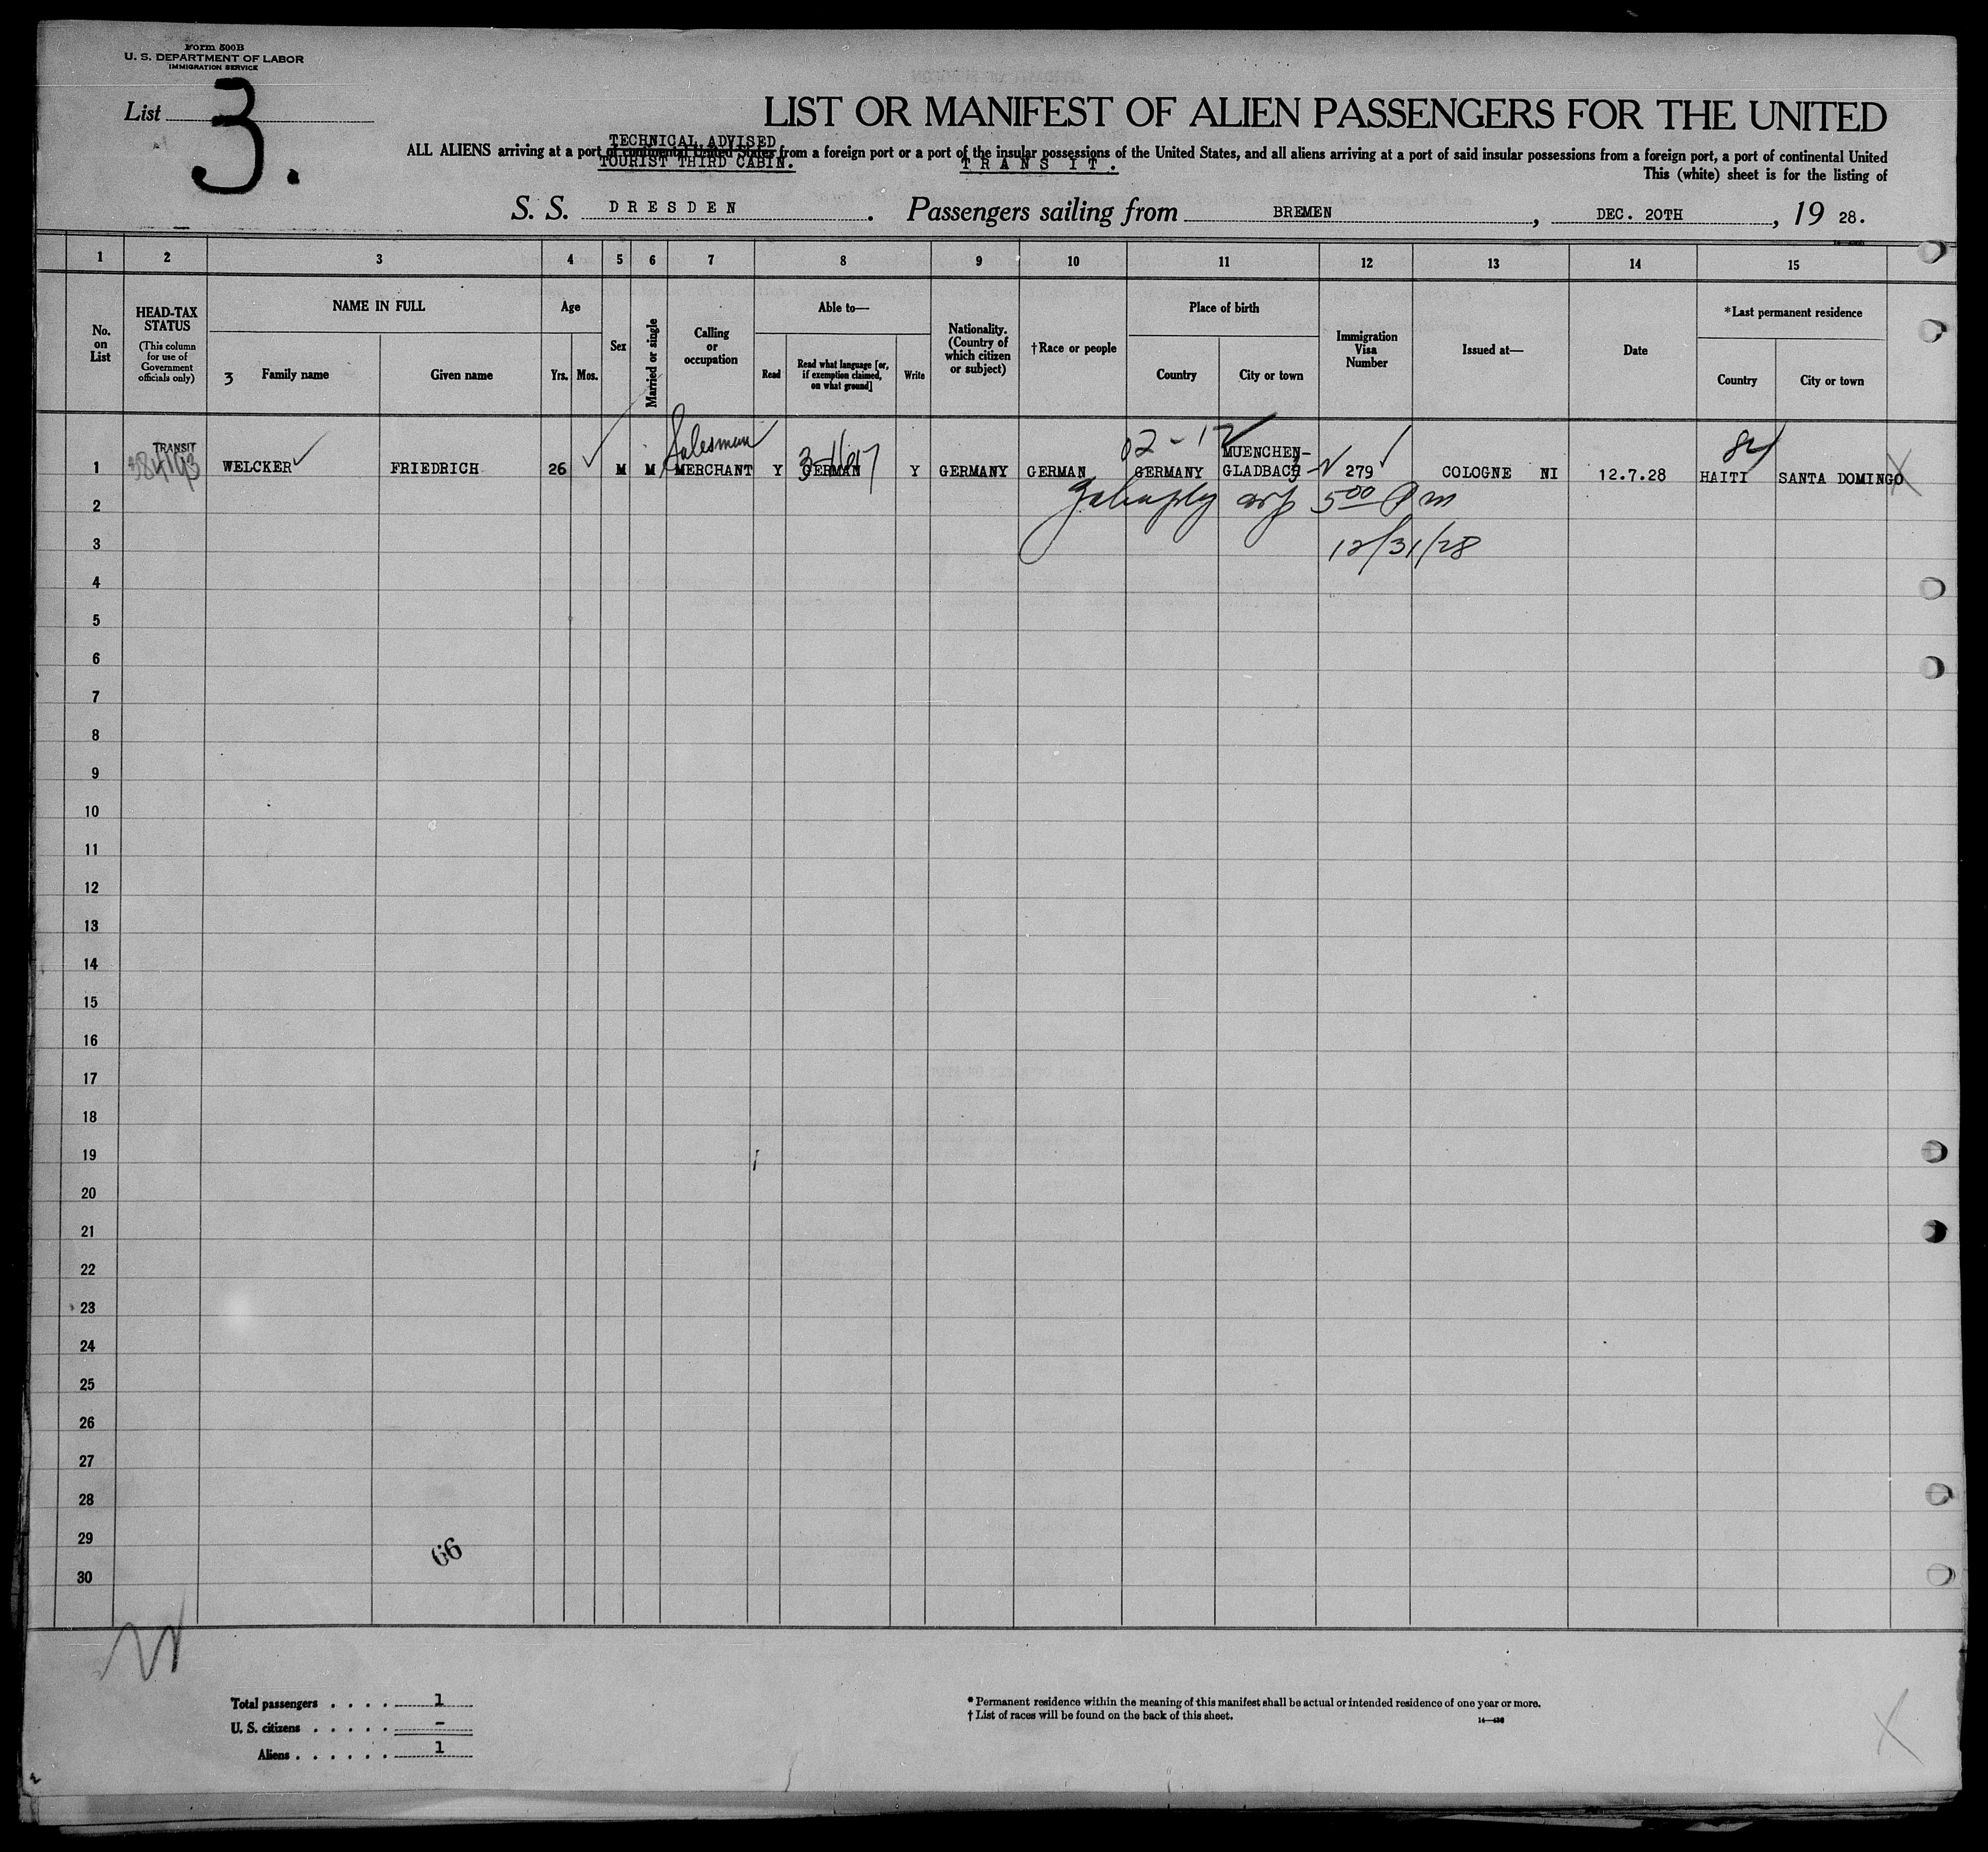 Form 500B
U. S. DEPARTMENT OF LABOR
IMMIGRATION SERVICE
List 3.
LIST OR MANIFEST OF ALIEN PASSENGERS FOR THE UNITED
TECHNICAL ADVISED
ALL ALIENS arriving at a port of continental United States from a foreign port or a port of the insular possessions of the United States, and all aliens arriving at a port of said insular possessions from a foreign port, a port of continental United
TOURIST THIRD CABIN. TRANSIT.
This (white) sheet is for the listing of
S. S. DRESDEN . Passengers sailing from BREMEN , DEC. 20TH , 19 28.
1 2 3 4 5 6 7 8 9 10 11 12 13 14 15
No. on List
HEAD-TAX STATUS
(This column for use of Government officials only)
NAME IN FULL
3 Family name
Given name
Age
Yrs. Mos.
Sex
Married or single
Calling or occupation
Able to—
Read
Read what language [or, if exemption claimed, on what ground]
Write
Nationality. (Country of which citizen or subject)
†Race or people
Place of birth
Country
City or town
Immigration Visa Number
Issued at—
Date
*Last permanent residence
Country
City or town
TRANSIT Salesman 02-12 MUENCHEN- 84
1 WELCKER FRIEDRICH 26 M M MERCHANT Y GERMAN Y GERMANY GERMAN GERMANY GLADBACH 279 COLOGNE NI 12.7.28 HAITI SANTA DOMINGO
2 5 00 Pm
3 12/31/28
4
5
6
7
8
9
10
11
12
13
14
15
16
17
18
19
20
21
22
23
24
25
26
27
28
29
30
66
Total passengers . . . . 1
U. S. citizens . . . . . -
Aliens . . . . . . 1
* Permanent residence within the meaning of this manifest shall be actual or intended residence of one year or more.
† List of races will be found on the back of this sheet.